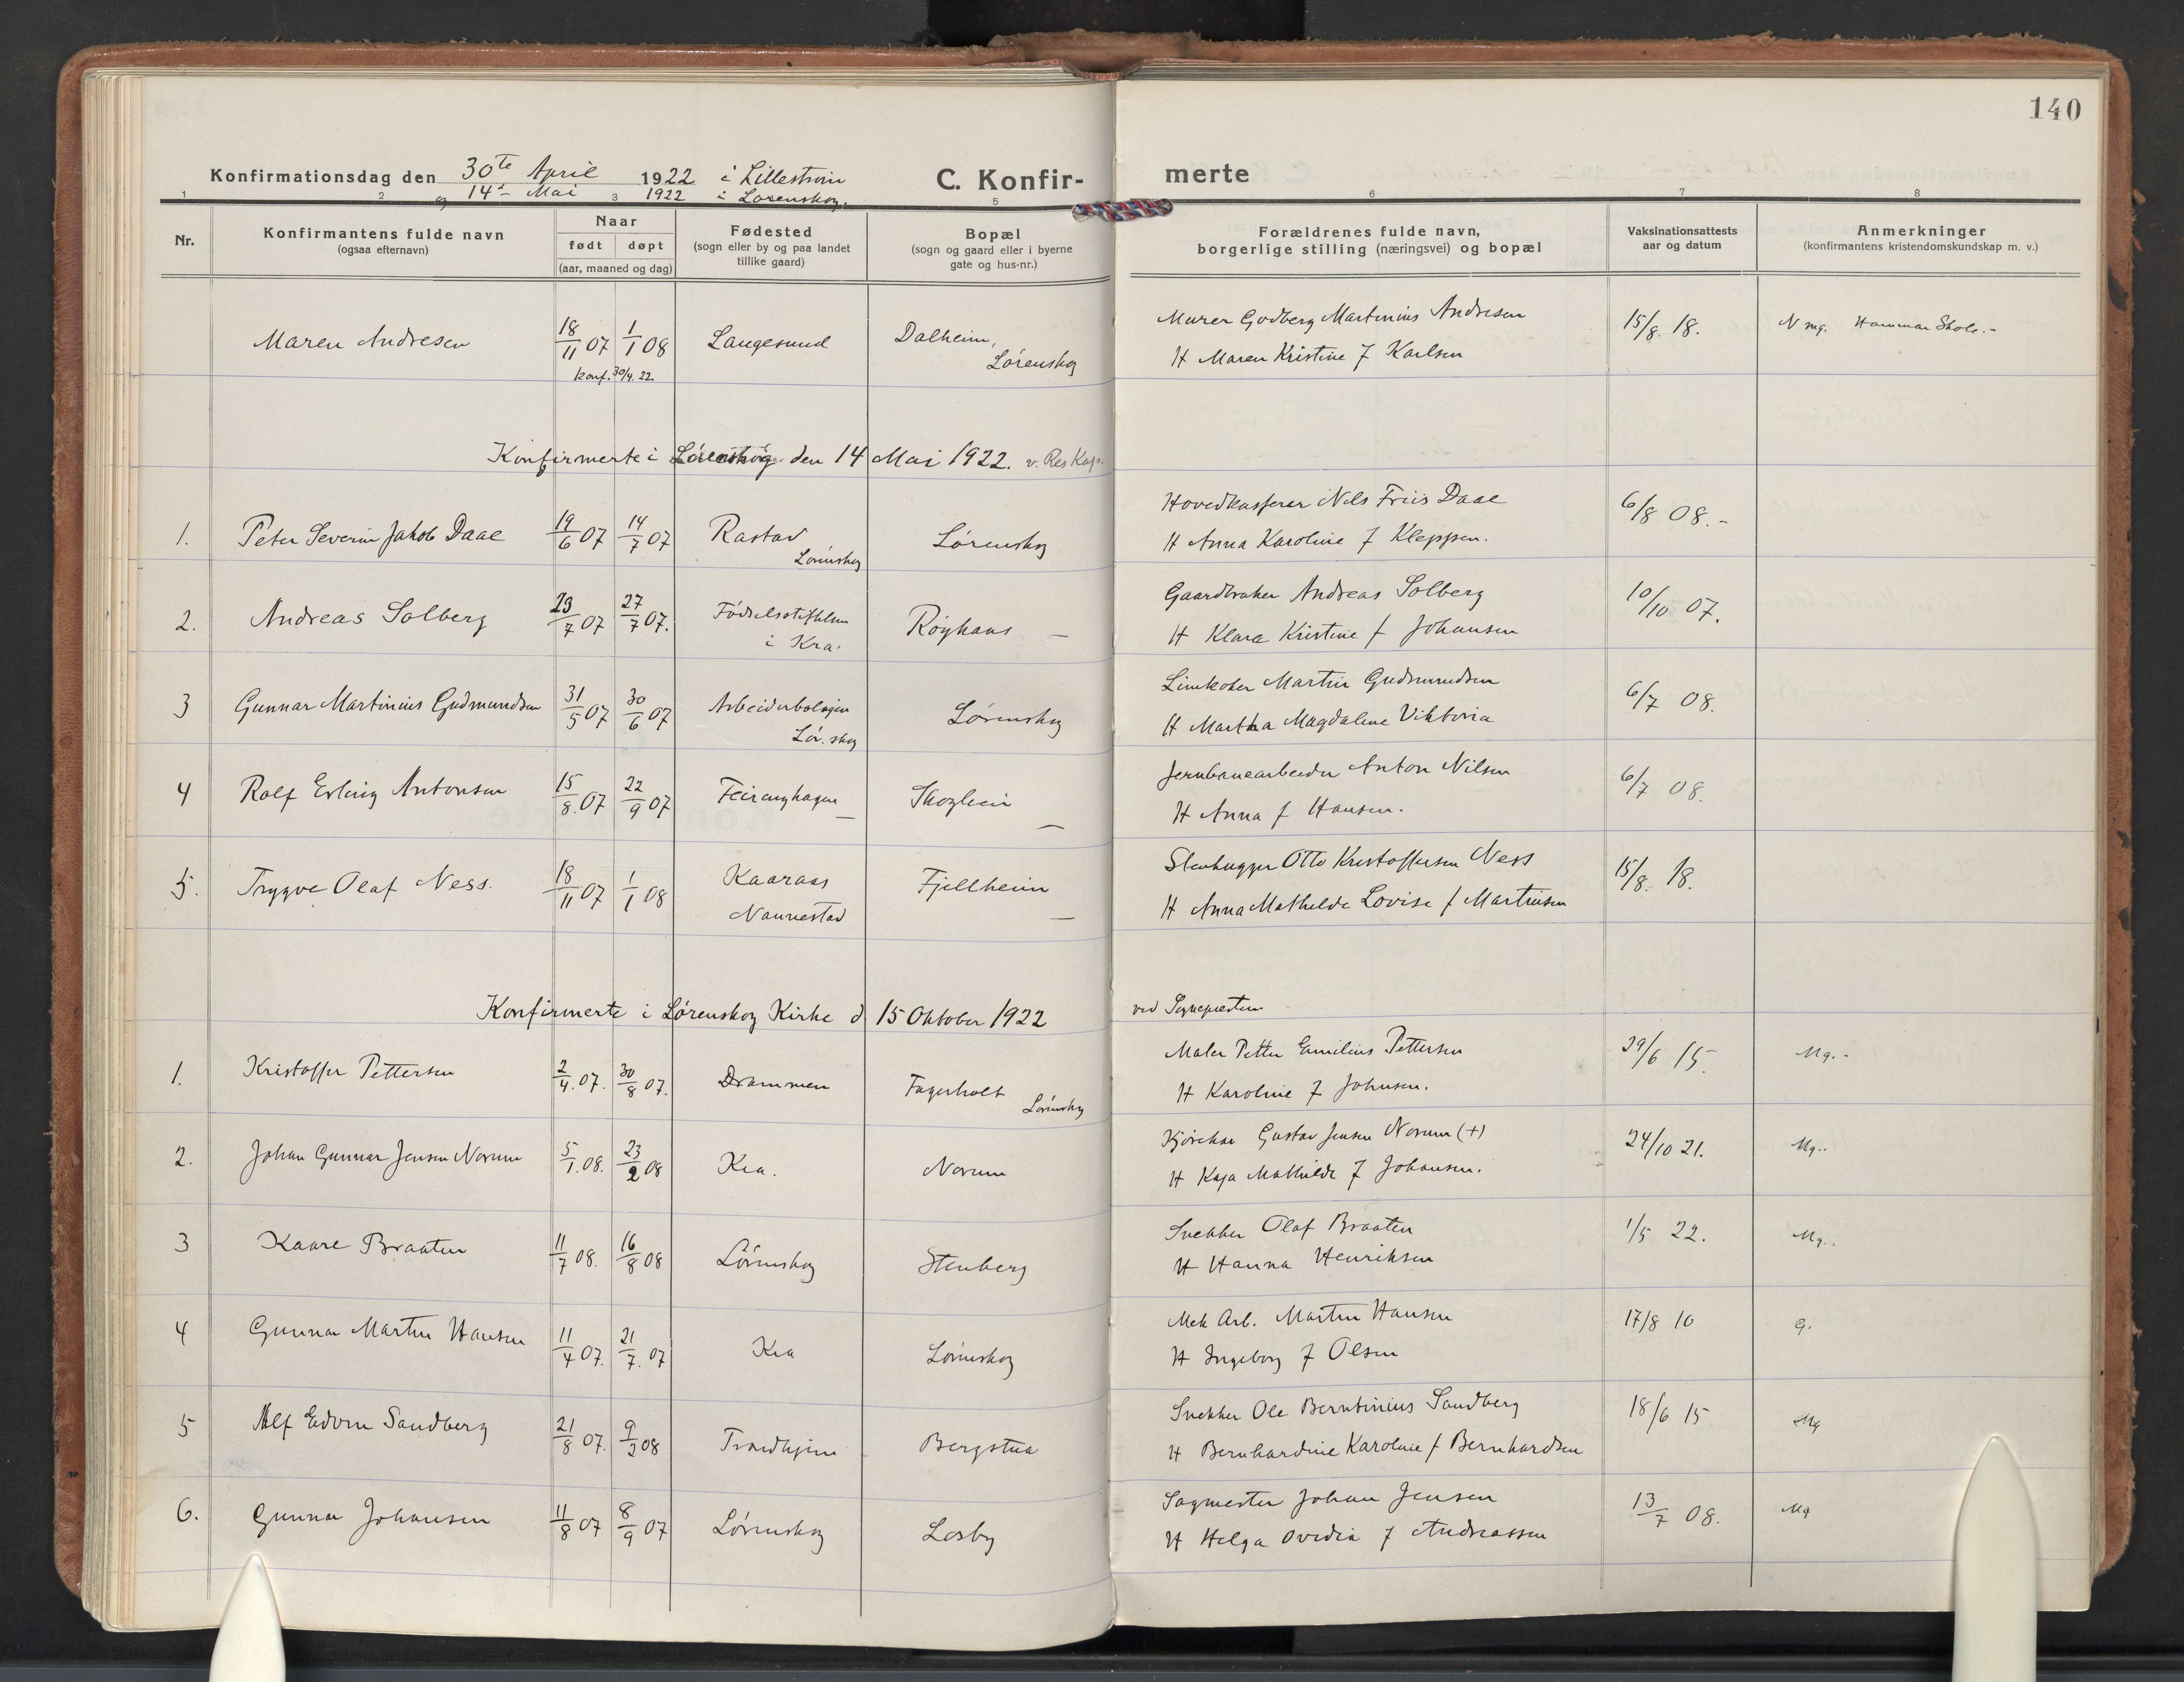 140
Konfirmationsdag den 30te April 1922 i Lillestrøm
og 14de Mai 1922 i Lørenskog.
C. Konfirmerte
1 2 3 5 6 7 8
Nr.
Konfirmantens fulde navn
(ogsaa efternavn)
Naar
født døpt
(aar, maaned og dag)
Fødested
(sogn eller by og paa landet
tillike gaard)
Bopæl
(sogn og gaard eller i byerne
gate og hus-nr.)
Forældrenes fulde navn,
borgerlige stilling (næringsvei) og bopæl
Vaksinationsattests
aar og datum
Anmerkninger
(konfirmantens kristendomskundskap m. v.)
Maren Andresen 18/11 07 1/1 08 Langesund Dalheim, Murer Godberg Martinius Andresen 15/8. 18. N mg. Hammar Skole.-
konf. 30/4. 22. Lørenskog H Maren Kristine f Karlsen
Konfirmerte i Lørenskog den 14 Mai 1922. v. Res Kap.
1. Peter Severin Jakob Daae 19/6 07 14/7 07 Rastad Lørenskog Hovedkasserer Nils Friis Daae 6/8 08.-
Lørenskog H Anna Karoline f Kleppen.
2. Andreas Solberg 23/7 07 27/7 07. Fødselsstiftelsen Røykaas — Gaardbruker Andreas Solberg 10/10 07.
i Kra. H Klara Kristine f Johansen
3 Gunnar Martinius Gudmundsen 31/5 07 30/6 07 Arbeiderboligen Lørenskog Limkoker Martin Gudmundsen 6/7 08.
Lør.skog H Martha Magdalene Viktoria
4 Rolf Erling Antonsen 15/8. 07 22/9 07 Feiringhagen — Skoglein — Jernbanearbeider Anton Nilsen 6/7 08.
H Anna f Hansen.
5. Trygve Olaf Ness. 18/11 07 1/1 08 Kaaraas Fjellheim — Stenhugger Otto Kristoffersen Ness 15/8. 18.
Nannestad H Anna Mathilde Lovise f Martinsen
Konfirmerte i Lørenskog Kirke d. 15 Oktober 1922 ved Sognepresten
1. Kristoffer Pettersen 2/4. 07. 30/8 07. Drammen Fagerholt Maler Petter Emilius Pettersen 29/6 15. Mg.-
Lørenskog H Karoline f Johnsen.
2. Johan Gunnar Jensen Norum 5/1. 08. 23/2 08 Kra. Norum Kjørekar Gustav Jensen Norum (+) 24/10 21. Mg..
H Kaja Mathilde f Johansen.
3 Kaare Braaten 11/7 08. 16/8 08 Lørenskog Stenberg Snekker Olaf Braaten 1/5 22. Mg..
H Hanna Henriksen
4 Gunnar Martin Hansen 11/4 07. 21/7. 07 Kra Lørenskog Mek Arb. Martin Hansen 17/8 10 G.
H Ingeborg f Olsen
5 Alf Edvin Sandberg 21/8 07. 9/2 08 Trondhjem Bergstua Snekker Ole Berntinius Sandberg 18/6 15 Mg
H Bernhardine Karoline f Bernhardsen
6. Gunnar Johansen 11/8 07 8/9 07 Lørenskog Losby Sagmester Johan Jensen 13/7 08. Mg
H Helga Ovidia f Andreassen